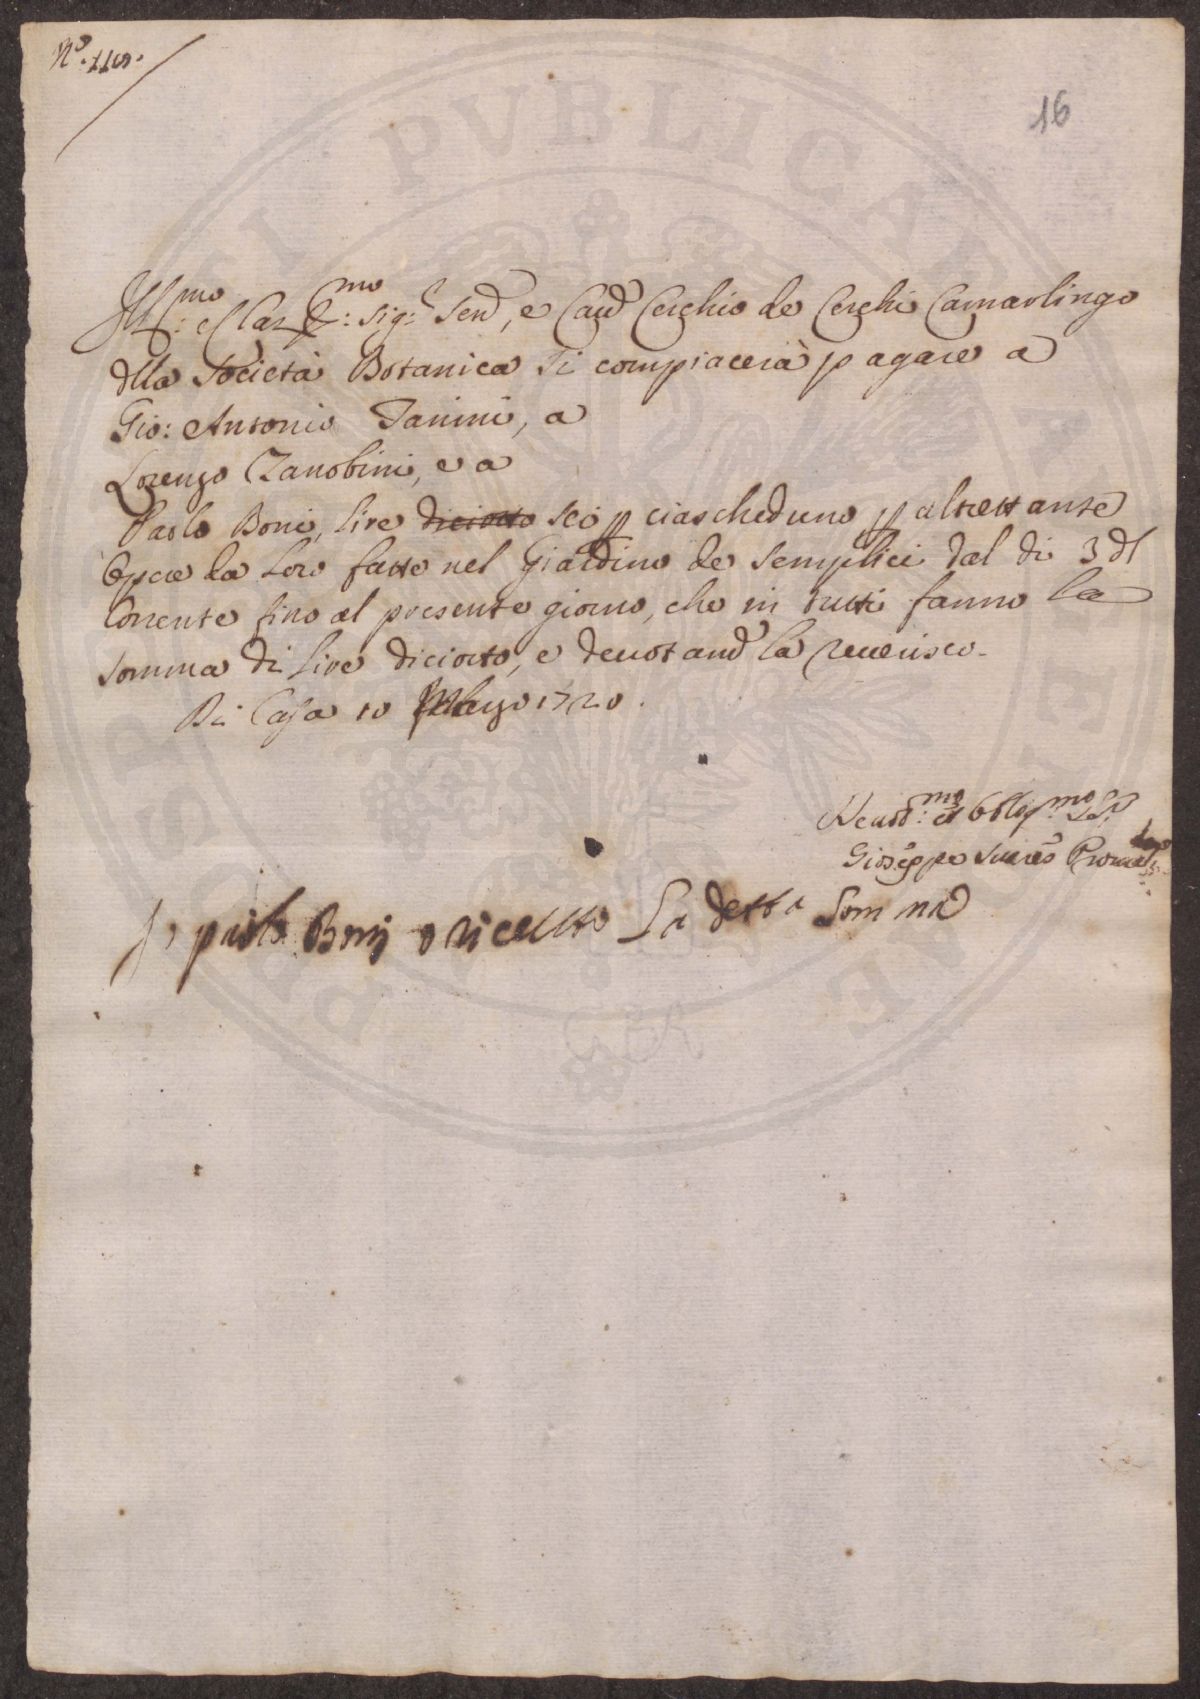 N.º 115.
16
Ill:mo e Clar:mo Sig:r Send, e Caud Cerchio de Cerchi Camarlingo
dlla Società Botanica Si compiacerà pagare a
Gio: Antonio Tanini, a
Lorenzo Zanobini, e a
Paolo Boni, lire diciotto sei p ciascheduno p altrettante
Opere da Loro fatte nel Giardino de Semplici dal di 3 dl
Corrente fino al presente giorno, che in tutti fanno la
somma di lire diciotto, e deuotamd la reuerisco.
Di Casa 10 1720.
Deuot:mo et Oblig:mo
Gioseppe
Io paolo Boni o riceuuto La detta Somma